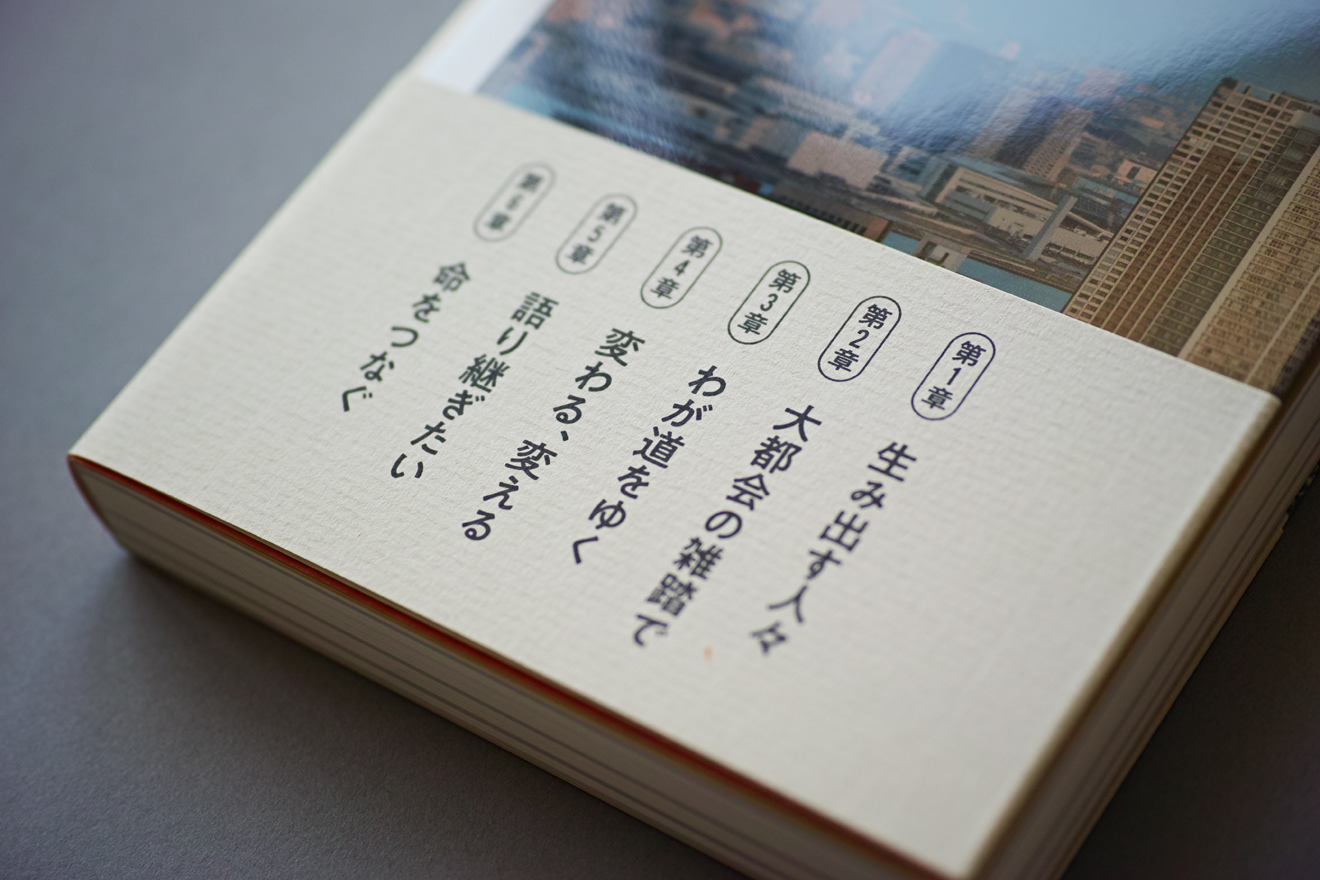 第1章 生み出す人々
第2章 大都会の雑踏で
第3章 わが道をゆく
第4章 変わる、変える
第5章 語り継ぎたい
第6章 命をつなぐ